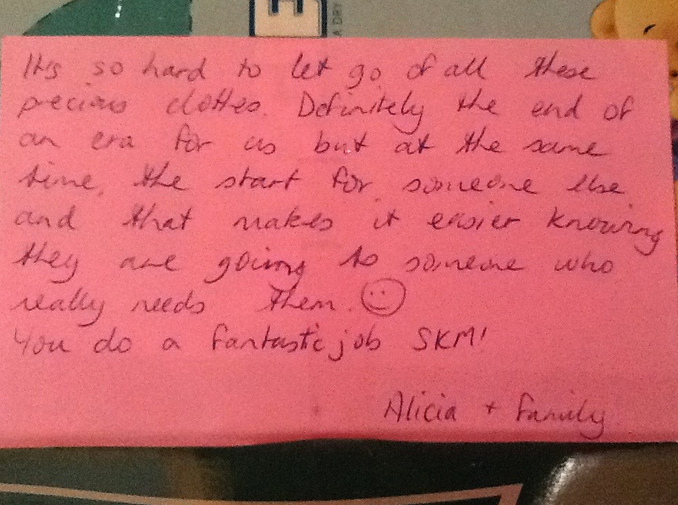 Its so hard to let go of all these
precious clothes. Definitely the end of
an era for us but at the same
time, the start for someone else
and that makes it easier knowing
they are going to someone who
really needs them.
You do a fantastic job SKM!
Alicia + family
E
A DRY